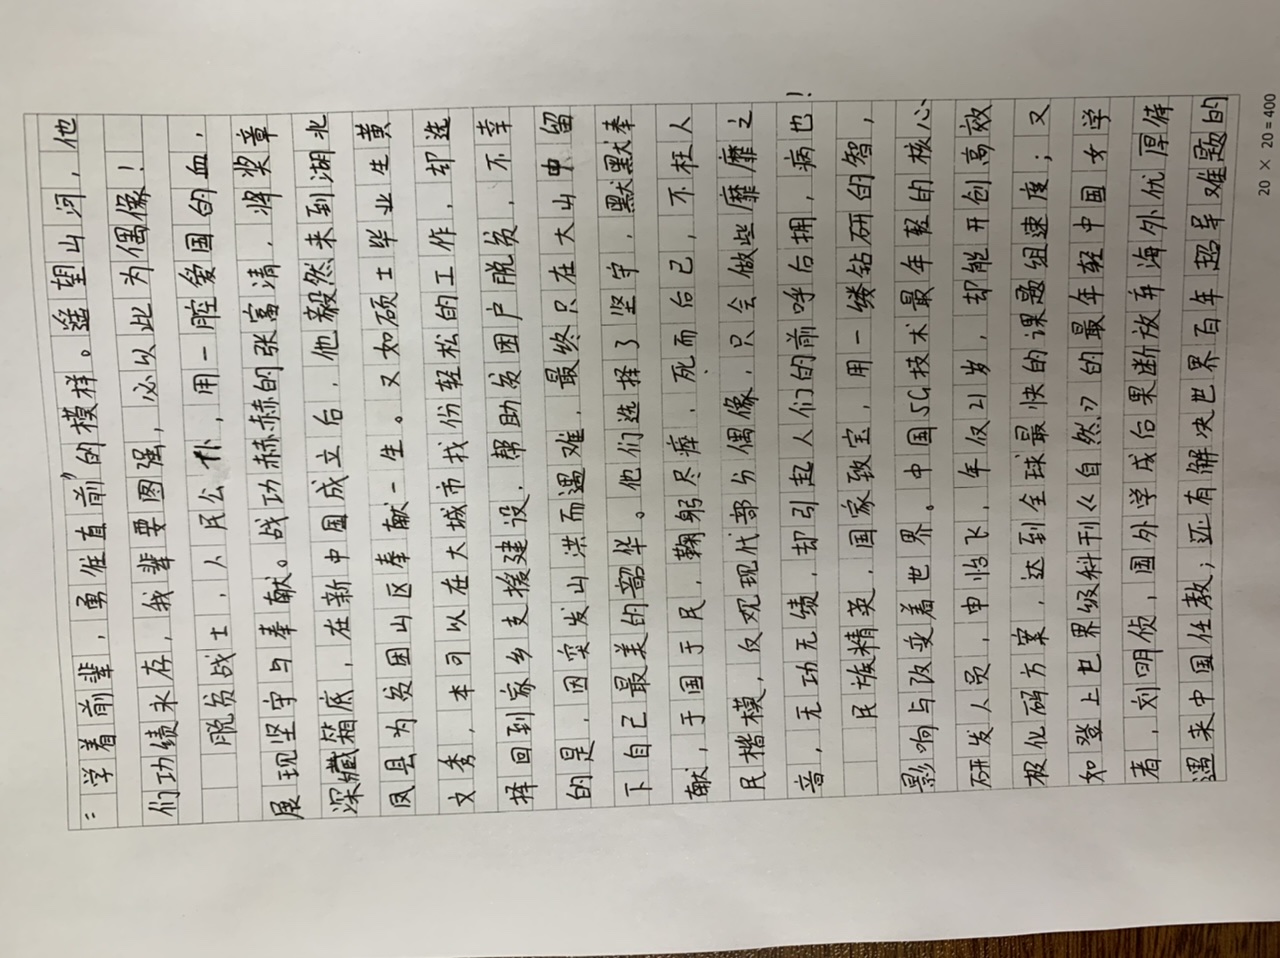 “学着前辈，勇往直前”的模样。遥望山河，他
们功绩永存，我辈要图强，必以此为偶像！
脱贫战士，人民公仆，用一腔爱国的血，
展现坚守与奉献。战功赫赫的张富清，将奖章
深藏箱底，在新中国成立后，他毅然来到湖北
凤县为贫困山区奉献一生。又如硕士毕业生黄
文秀，本可以在大城市找份轻松的工作，却选
择回到家乡支援建设，帮助贫困户脱贫，不幸
的是，因突发山洪而遇难，最终只在大山中留
下自己最美的韶华。他们选择了坚守，默默奉
献，于国于民，鞠躬尽瘁，死而后已，不枉人
民楷模，反观现代部分偶像，只会做些靡靡之
音，无功无绩，却引起人们的前呼后拥，病也！
民族精英，国家致宝，用一缕钻研的智，
影响与改变着世界。中国5G技术最年轻的核心
研发人员，申怡飞，年仅21岁，却能开创高效
极化码方案，达到全球最快的课题组速度；又
如登上世界级科刊《自然》的最年轻中国女学
者，刘明侦，国外学成后果断放弃海外优厚待
遇来中国任教；还有解决世界百年超导难题的
20 × 20 = 400